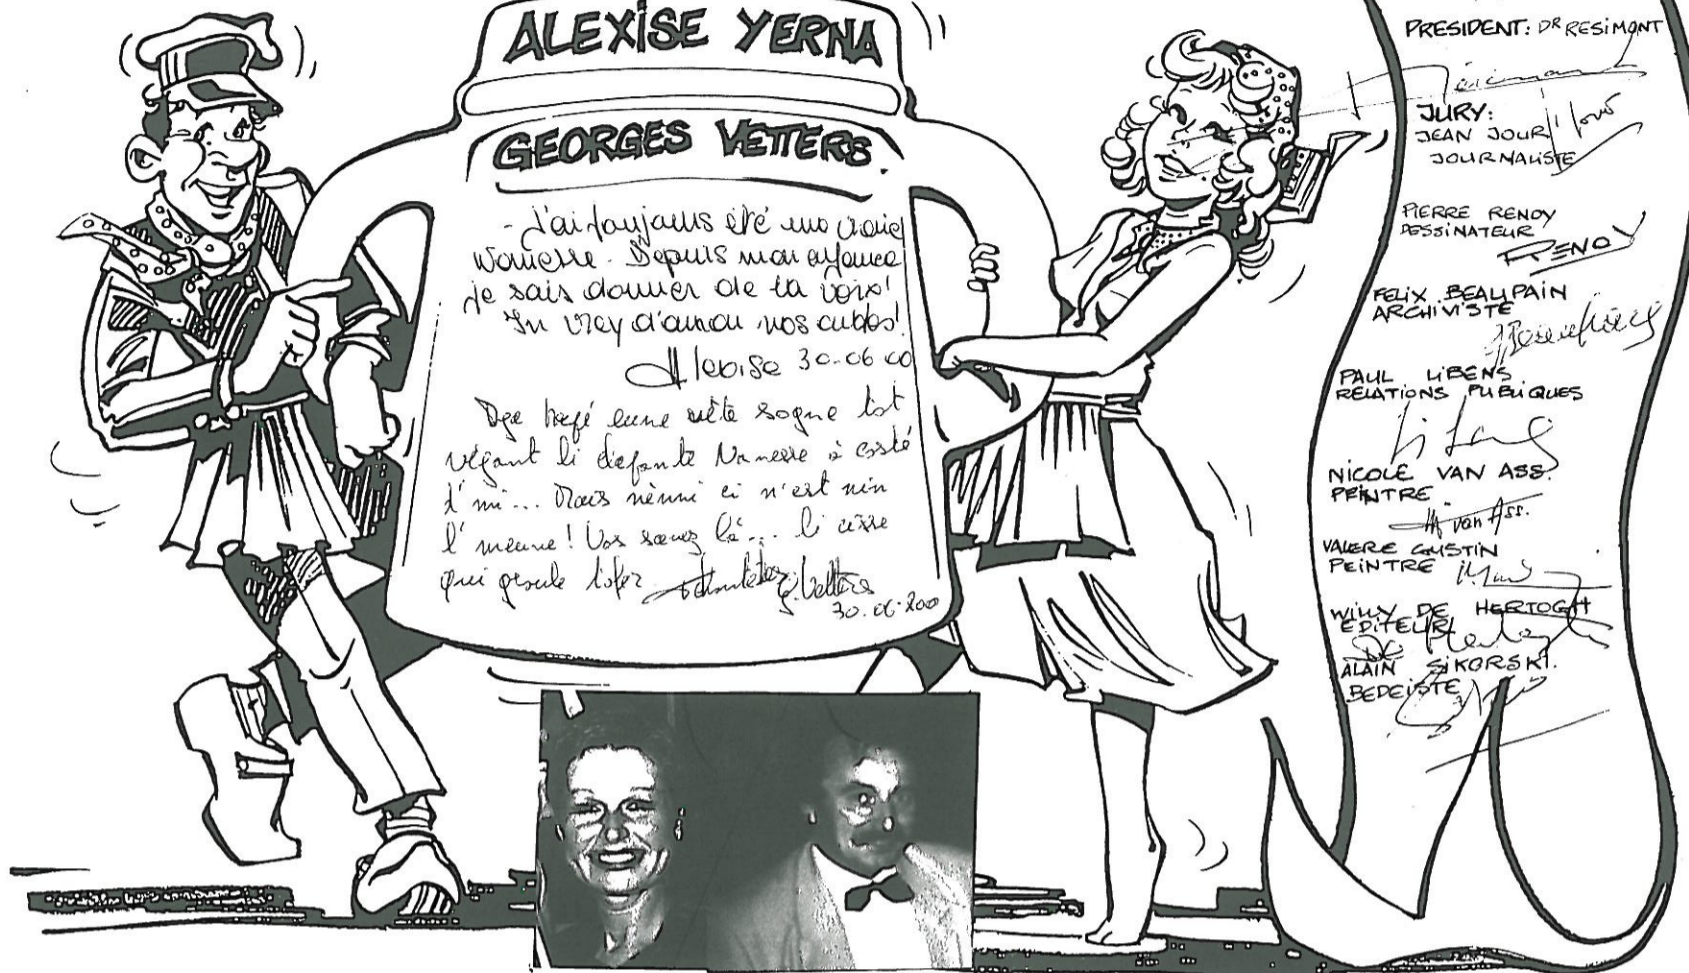 ALEXISE YERNA
GEORGES VETTERS
- J'ai toujours été une vraie
Nanesse. Depuis mon enfance
je sais donner de la voix!
In vrey d'amou nos autes!
Alexise 30-06 00
Dja hagé eune mête sogne tot
vèyant li Nanesse à costé
d'mi... Mais nènni ci n'est nin
l'meune! Vos savez là... li cisse
qui gueule tofer
G. Vetters
30.06.200
PRESIDENT: DR RESIMONT
JURY:
JEAN JOUR
JOURNALISTE
PIERRE RENOY
DESSINATEUR
RENOY
FELIX BEAUPAIN
ARCHIVISTE
PAUL LIBENS
RELATIONS PUBLIQUES
NICOLE VAN ASS.
PEINTRE
van Ass.
VALERE GUSTIN
PEINTRE
WILLY DE HERTOGH
EDITEUR
ALAIN SIKORSKI.
BEDEISTE